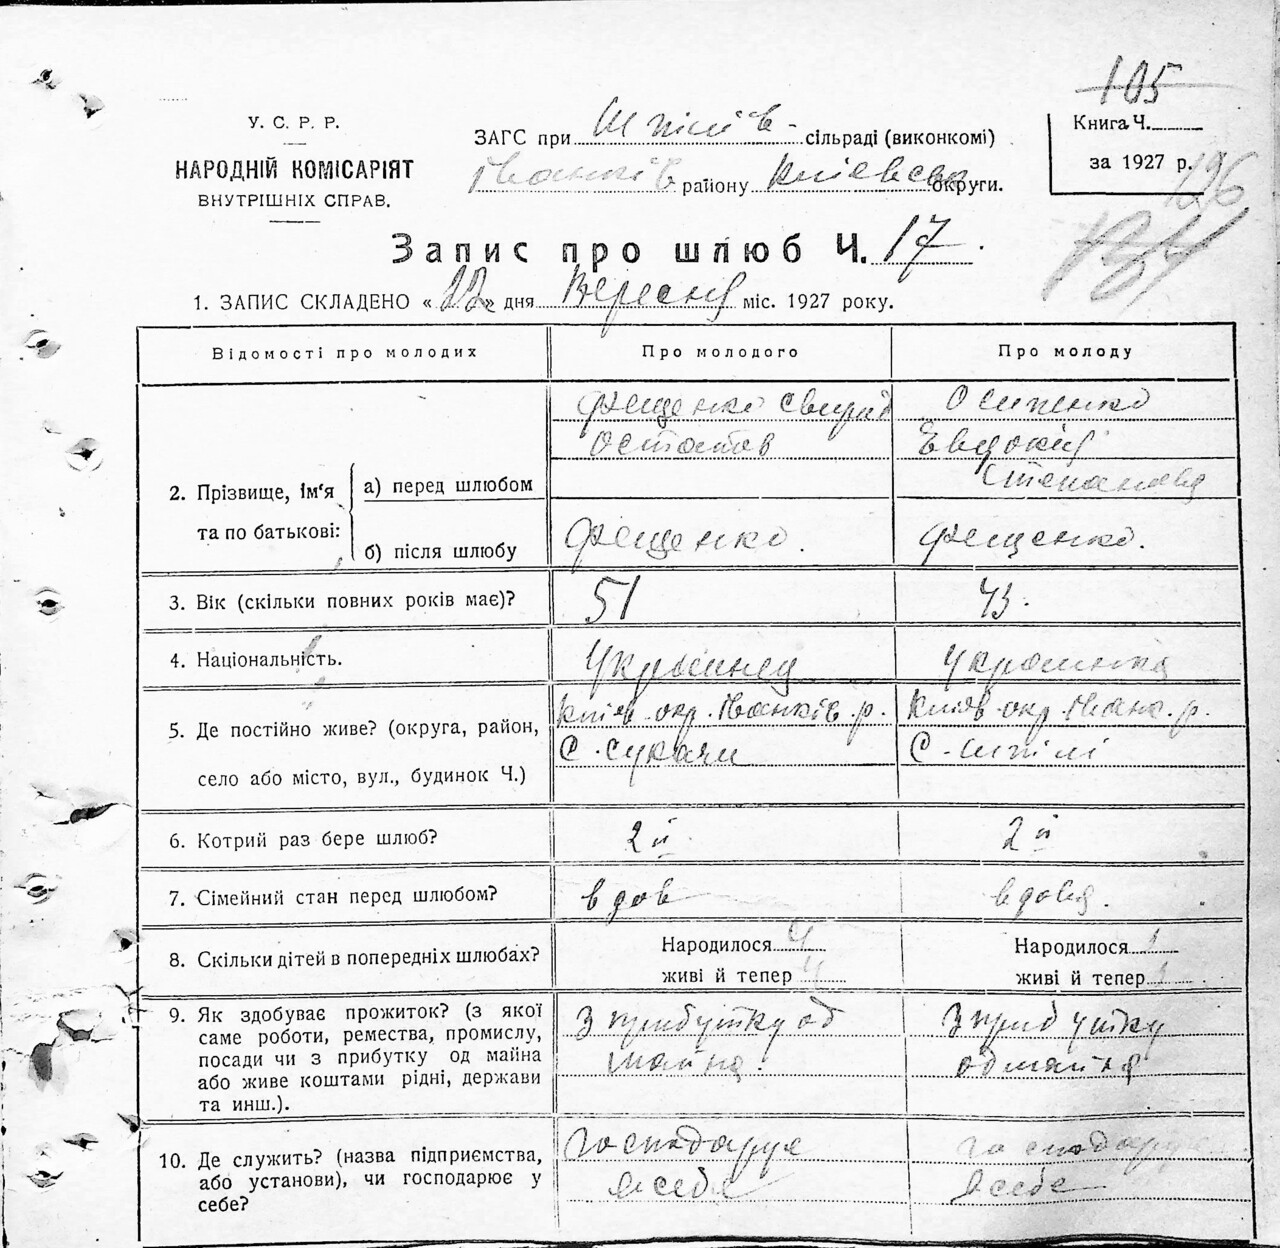 105
У. С. Р. Р.
НАРОДНІЙ КОМІСАРІЯТ
ВНУТРІШНІХ СПРАВ.
ЗАГС при Шпілів- сільраді (виконкомі)
Іванків району Київськ округи.
Книга Ч.
за 1927 р.
196
Запис про шлюб Ч. 17.
1. ЗАПИС СКЛАДЕНО « » дня Вересня міс. 1927 року.
Відомості про молодих Про молодого Про молоду
2. Прізвище, ім'я та по батькові:
а) перед шлюбом
Фещенко Свирид
Остапов
Осипенко
Евдокія
Степановна
б) після шлюбу Фещенко. Фещенко.
3. Вік (скільки повних років має)? 51 43.
4. Національність. Украинец Украинка
5. Де постійно живе? (округа, район,
село або місто, вул., будинок Ч.)
Київ. окр. Іванків. р.
С. Сукачи
Київ. окр. Іванк. р.
С. Шпілі
6. Котрий раз бере шлюб? 2й 2й
7. Сімейний стан перед шлюбом? вдов вдова.
8. Скільки дітей в попередніх шлюбах?
Народилося 4
живі й тепер 4
Народилося 1
живі й тепер 1
9. Як здобуває прожиток? (з якої
саме роботи, ремества, промислу,
посади чи з прибутку од майна
або живе коштами рідні, держави
та инш.).
З прибутку од
майна.
З прибутку
од майна
10. Де служить? (назва підприємства,
або установи), чи господарює у
себе?
господарує
в себе
господарує
в себе